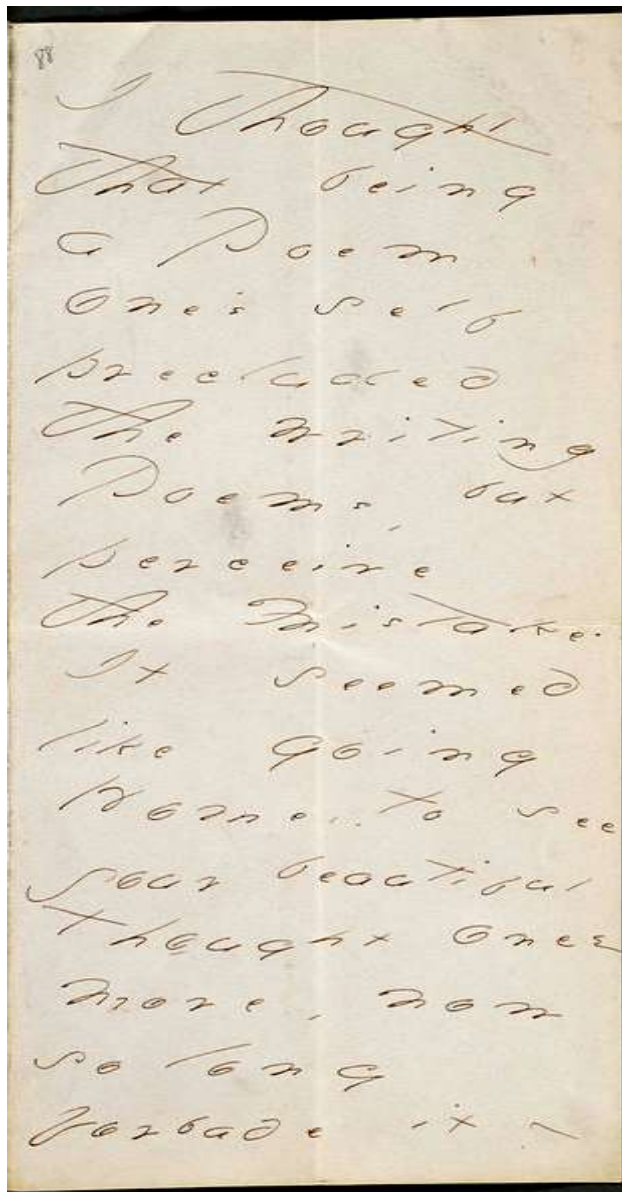 88
I Thought
that being
a Poem
one's self
precluded
the writing
Poems, but
perceive
the Mistake.
It seemed
like going
Home, to see
your beautiful
thought once
more, now
so long
forbade it –